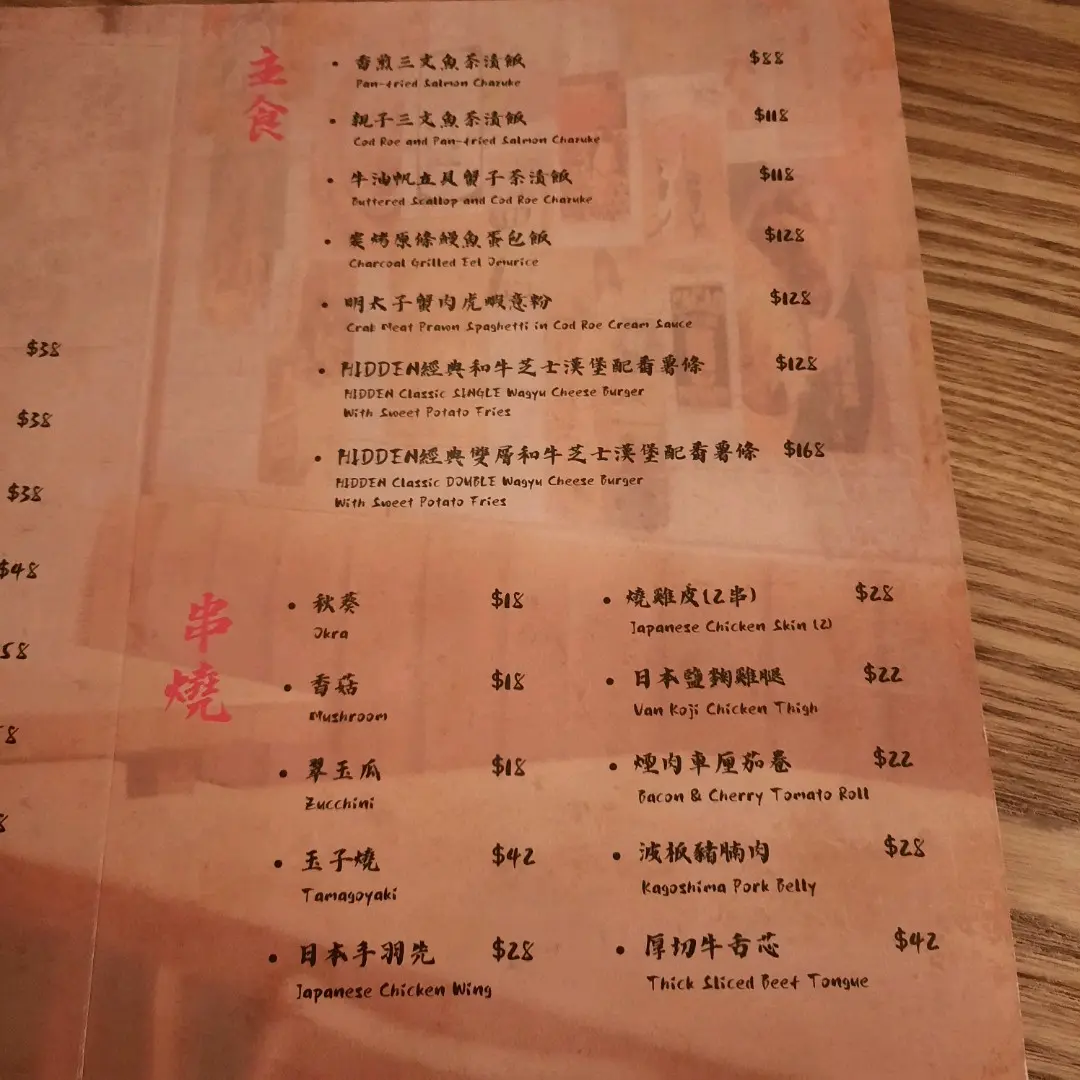 主食
• 香煎三文魚茶漬飯 $88
Pan-fried Salmon Chazuke
• 親子三文魚茶漬飯 $118
Cod Roe and Pan-fried Salmon Chazuke
• 牛油帆立貝蟹子茶漬飯 $118
Buttered Scallop and Cod Roe Chazuke
• 炭烤原條鰻魚蛋包飯 $128
Charcoal Grilled Eel Omurice
• 明太子蟹肉虎蝦意粉 $128
Crab Meat Prawn Spaghetti in Cod Roe Cream Sauce
• HIDDEN經典和牛芝士漢堡配番薯條 $128
HIDDEN Classic SINGLE Wagyu Cheese Burger
With Sweet Potato Fries
• HIDDEN經典雙層和牛芝士漢堡配番薯條 $168
HIDDEN Classic DOUBLE Wagyu Cheese Burger
With Sweet Potato Fries
$38
$38
$38
$48
58
8
串燒
• 秋葵 $18
Okra
• 香菇 $18
Mushroom
• 翠玉瓜 $18
Zucchini
• 玉子燒 $42
Tamagoyaki
• 日本手羽先 $28
Japanese Chicken Wing
• 燒雞皮(2串) $28
Japanese Chicken Skin (2)
• 日本鹽麴雞腿 $22
Van Koji Chicken Thigh
• 煙肉車厘茄卷 $22
Bacon & Cherry Tomato Roll
• 波板豬腩肉 $28
Kagoshima Pork Belly
• 厚切牛舌芯 $42
Thick Sliced Beef Tongue